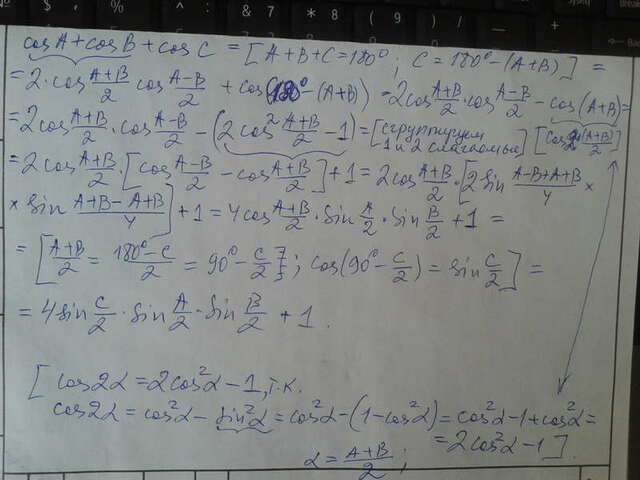 cosA + cosB + cosC = [A+B+C=180°; C=180°-(A+B)] =
= 2·cos (A+B)/2 cos (A-B)/2 + cos(180°-(A+B)) = 2cos (A+B)/2 · cos (A-B)/2 - cos(A+B) =
= 2cos (A+B)/2 · cos (A-B)/2 - (2cos² (A+B)/2 - 1) = [сгруппируем 1 и 2 слагаемые] [cos 2·(A+B)/2]
= 2cos (A+B)/2 · [cos (A-B)/2 - cos (A+B)/2] + 1 = 2cos (A+B)/2 · [2 sin (A-B+A+B)/4 ×
× sin (A+B-A+B)/4] + 1 = 4cos (A+B)/2 · sin A/2 · sin B/2 + 1 =
= [(A+B)/2 = (180°-C)/2 = 90° - C/2; cos(90° - C/2) = sin C/2] =
= 4 sin C/2 · sin A/2 · sin B/2 + 1.
[cos2α = 2cos²α - 1, т.к.
cos2α = cos²α - sin²α = cos²α - (1-cos²α) = cos²α - 1 + cos²α =
= 2cos²α - 1].
α = (A+B)/2;